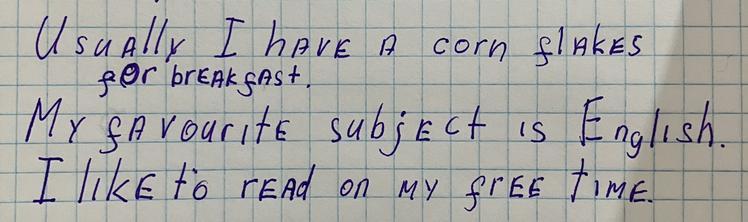 Usually I have a corn flakes
for breakfast.
My favourite subject is English.
I like to read on my free time.